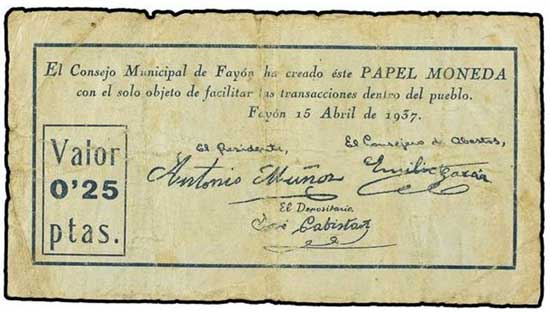 El Consejo Municipal de Fayón ha creado éste PAPEL MONEDA
con el solo objeto de facilitar las transacciones dentro del pueblo.
Fayón 15 Abril de 1937.
Valor
0'25
ptas.
El Presidente,
Antonio Muñoz
El Consejero de Abastos,
Emilio García
El Depositario
José Cabistañ